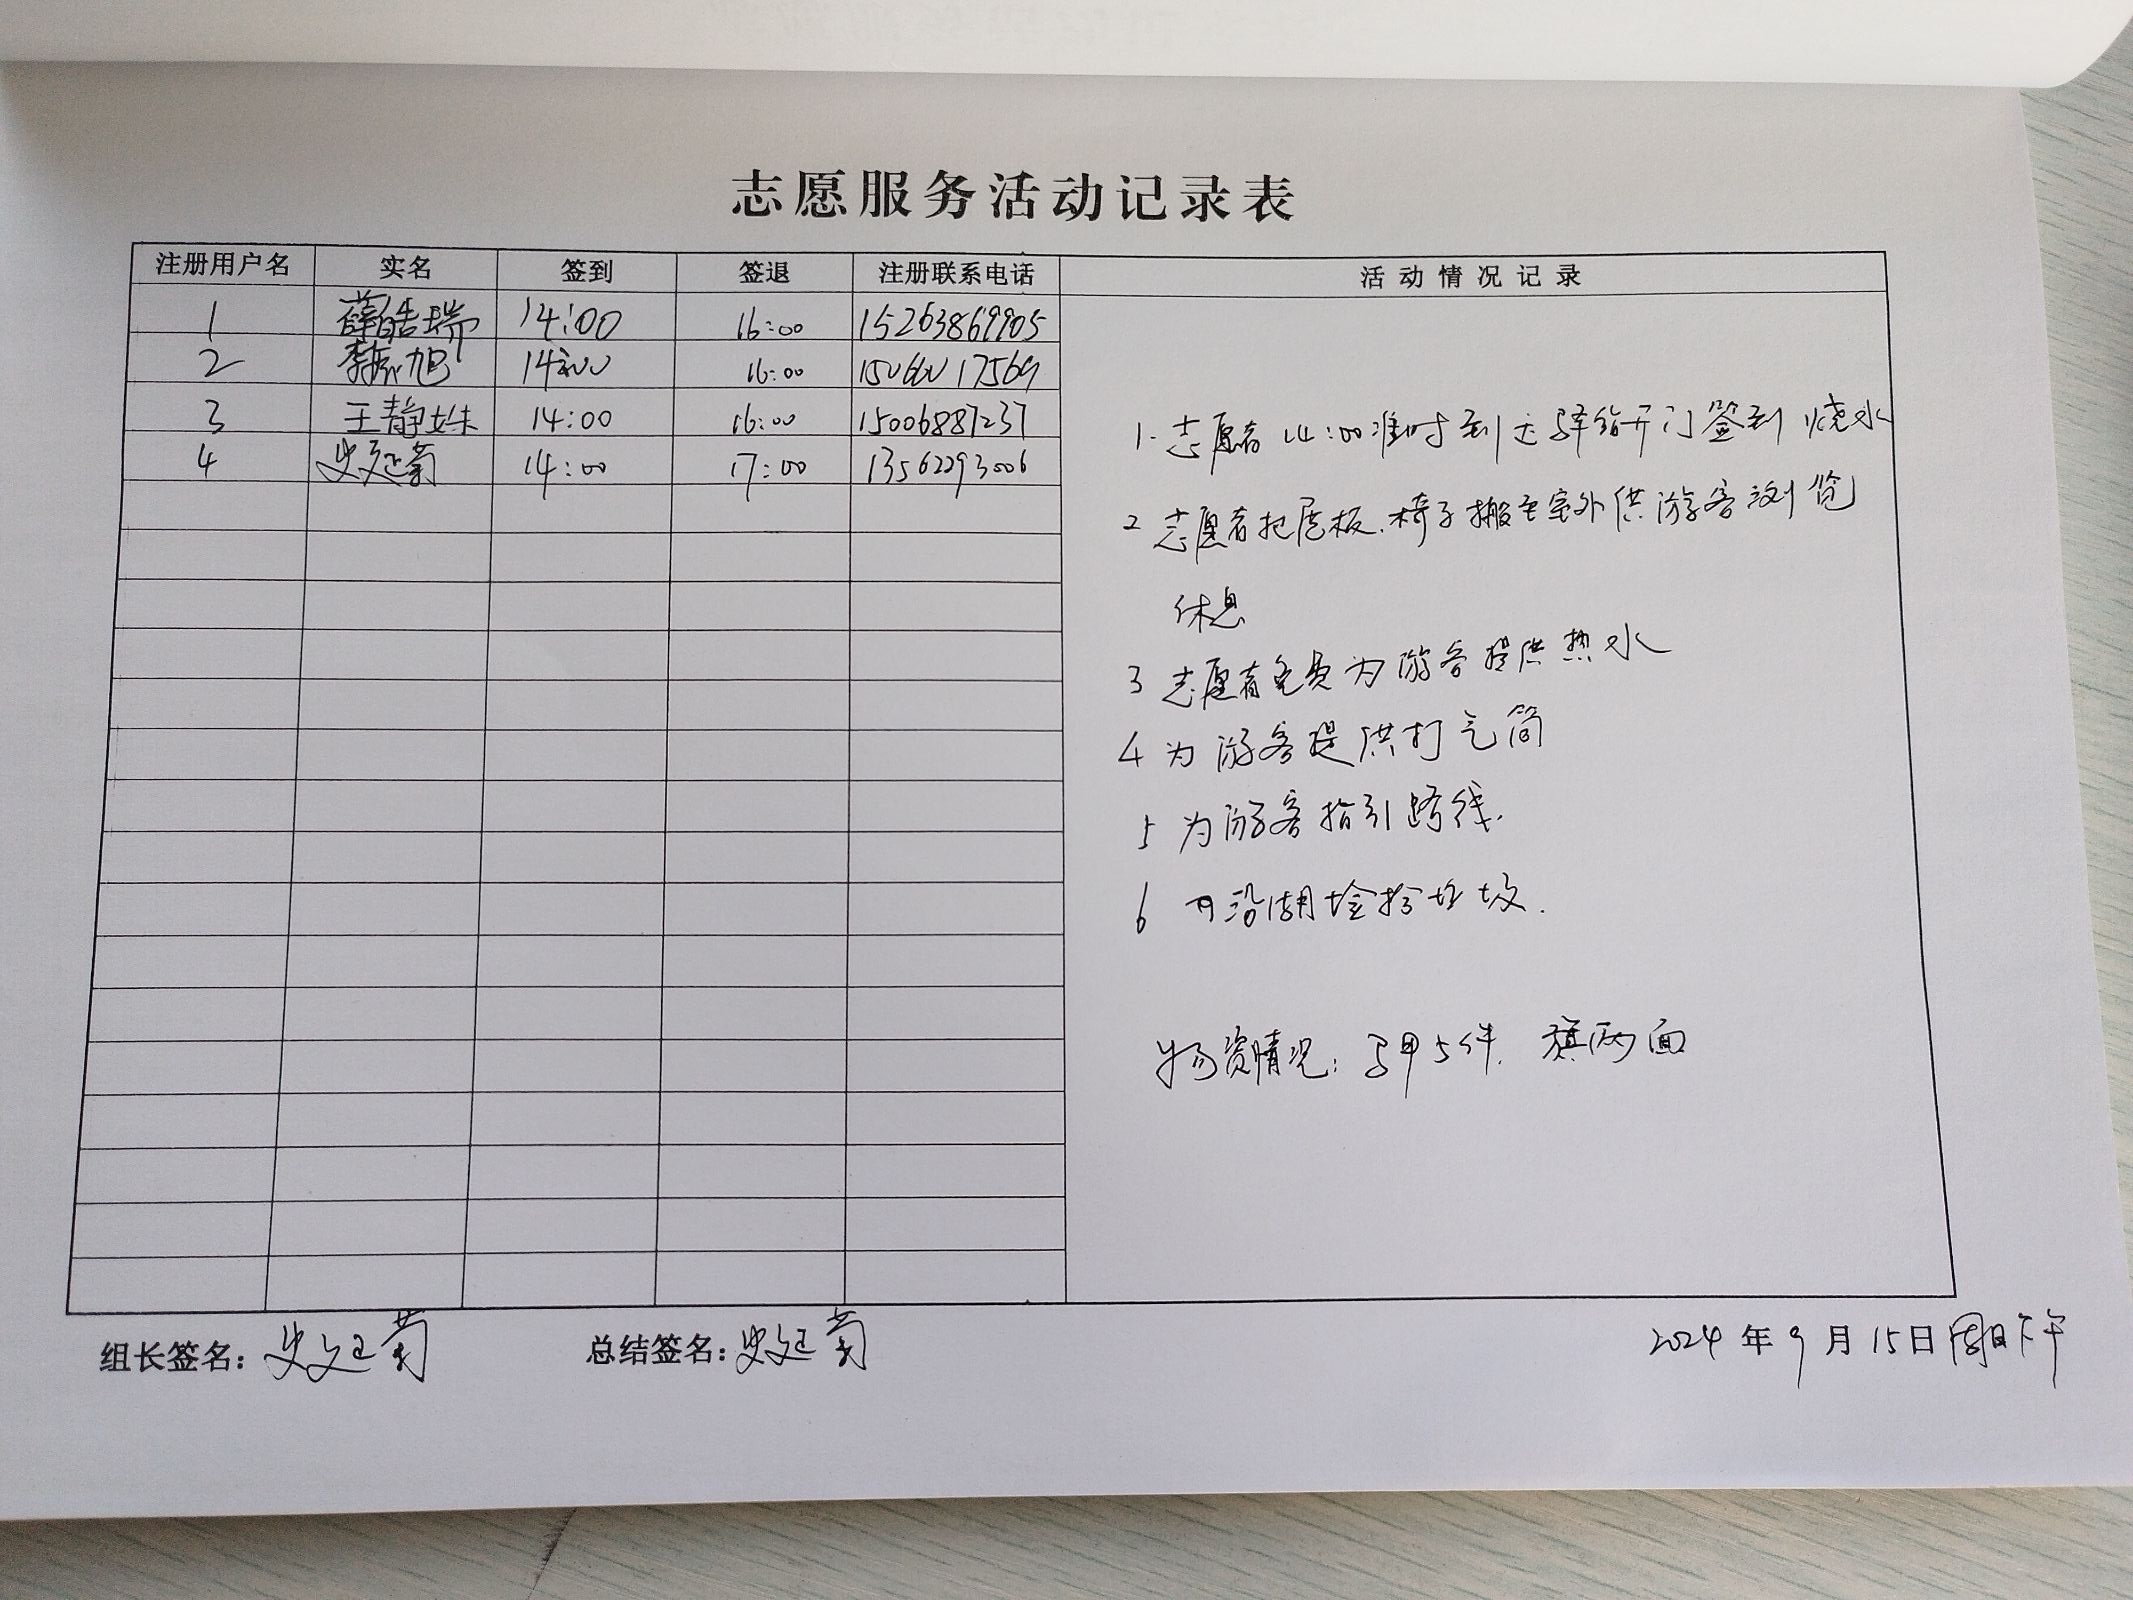 志愿服务活动记录表
注册用户名 实名 签到 签退 注册联系电话 活动情况记录
1 薛皓瑞 14:00 16:00 15263869905
2 李振旭 14:00 16:00
3 王静姝 14:00 16:00 15006887237
4 史延菊 14:00 17:00 13562293006
1. 志愿者14:00准时到达驿站开门签到 烧水
2 志愿者把展板、椅子搬至室外供游客浏览
休息
3 志愿者免费为游客提供热水
4 为游客提供打气筒
5 为游客指引路线.
6 沿湖捡拾垃圾.
物资情况: 马甲5件. 旗两面
组长签名: 史延菊 总结签名: 史延菊 2024年9月15日周日下午